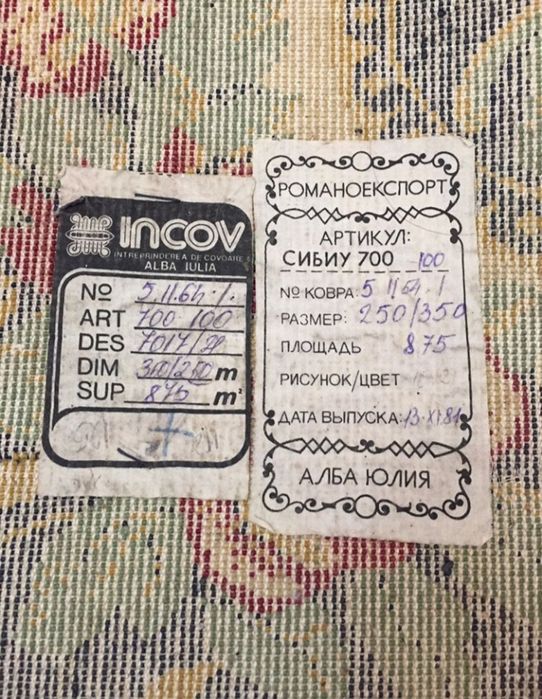 INCOV
INTREPRINDEREA DE COVOARE
ALBA IULIA
Nº 5.11.64./.
ART 700 100
DES 7017/
DIM m
SUP 875 m²
РОМАНОЕКСПОРТ
АРТИКУЛ:
СИБИУ 700 100
№ КОВРА: 5 11/64./
РАЗМЕР: 250/350
ПЛОЩАДЬ 875
РИСУНОК/ЦВЕТ
ДАТА ВЫПУСКА: 13 XI 81
АЛБА ЮЛИЯ